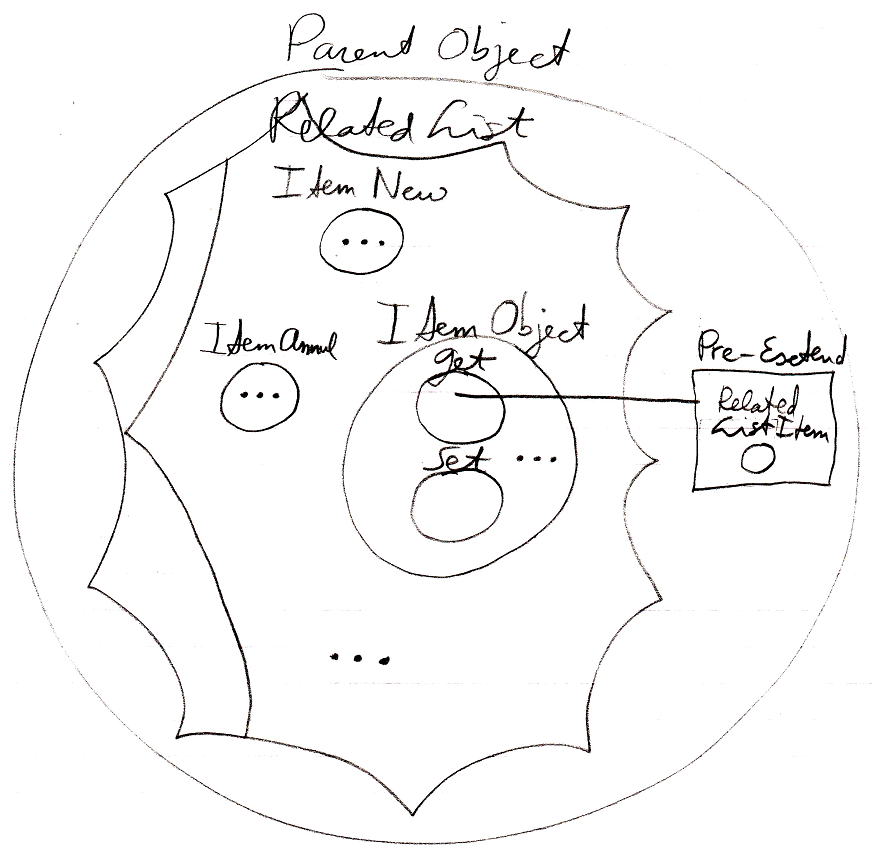 Parent Object
Related List
Item New
...
Item Object
Item Annul
...
get
Set ...
Pre-Extend
Related
List Item
...